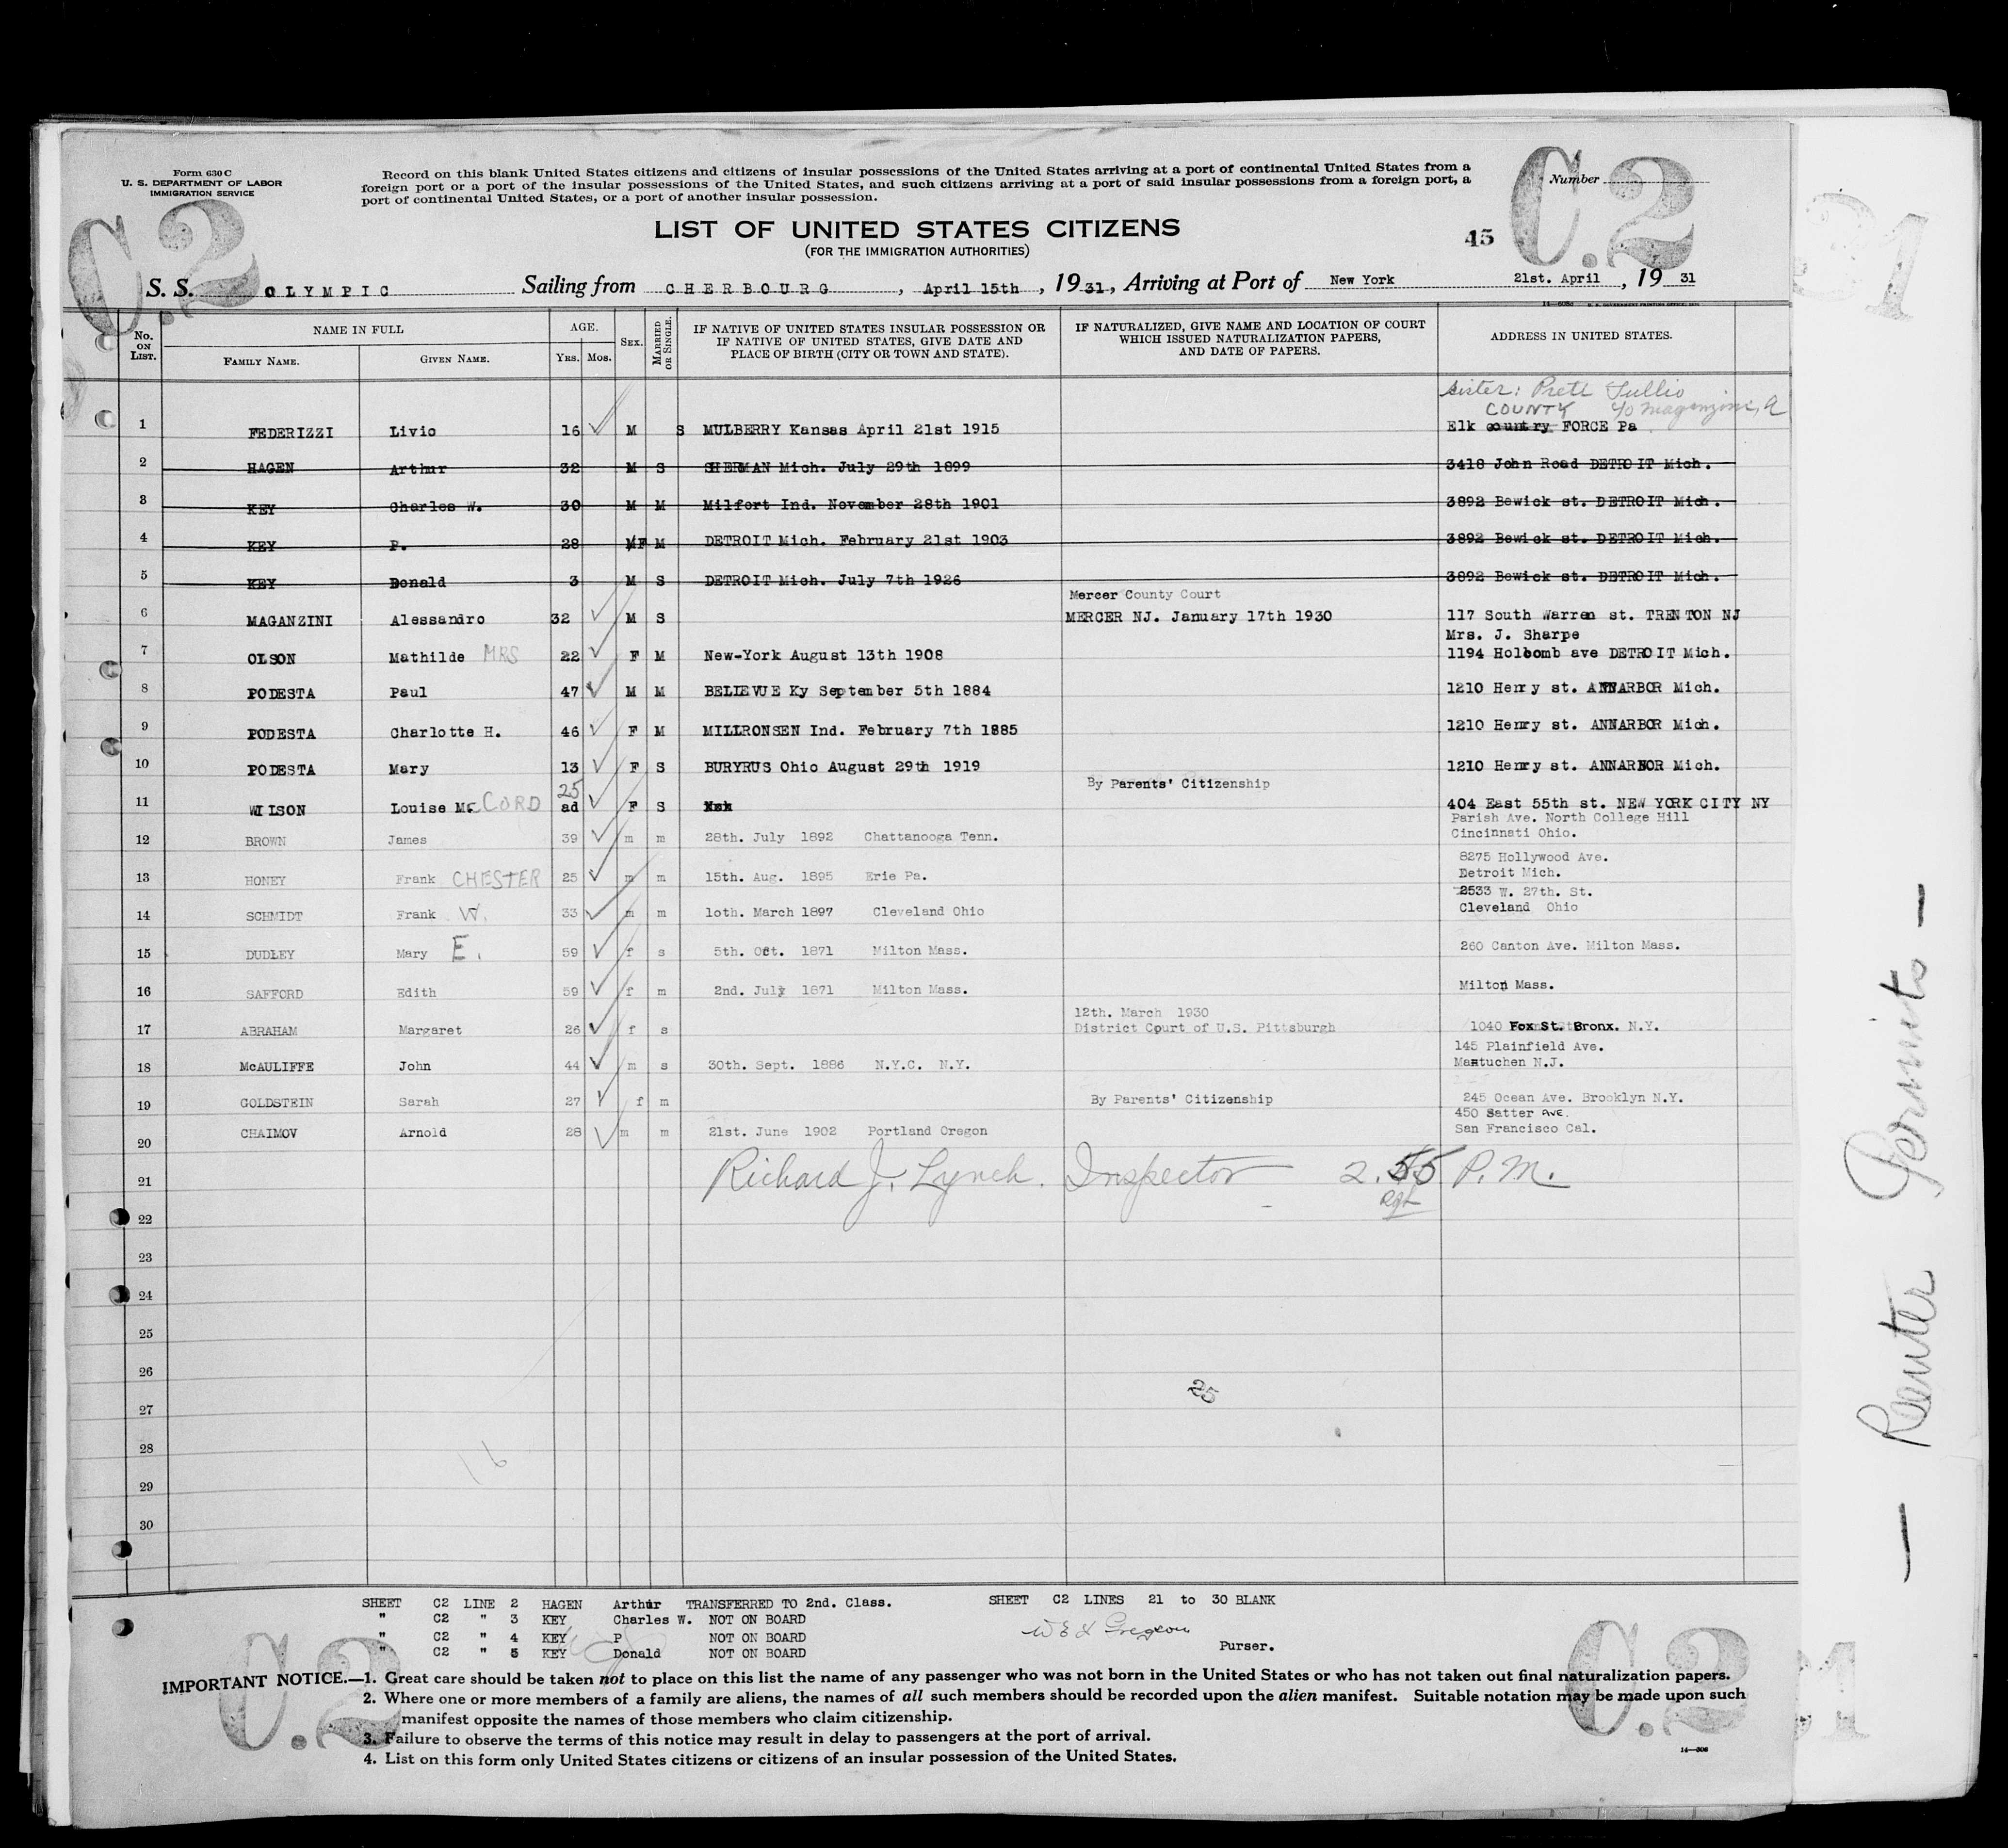 Form 630 C
U. S. DEPARTMENT OF LABOR
IMMIGRATION SERVICE
Record on this blank United States citizens and citizens of insular possessions of the United States arriving at a port of continental United States from a
foreign port or a port of the insular possessions of the United States, and such citizens arriving at a port of said insular possessions from a foreign port, a
port of continental United States, or a port of another insular possession.
Number
C.2
C.2
LIST OF UNITED STATES CITIZENS
(FOR THE IMMIGRATION AUTHORITIES)
45
S. S. OLYMPIC Sailing from CHERBOURG, April 15th, 1931, Arriving at Port of New York 21st. April, 1931
No. ON LIST. NAME IN FULL AGE. SEX. MARRIED OR SINGLE. IF NATIVE OF UNITED STATES INSULAR POSSESSION OR IF NATIVE OF UNITED STATES, GIVE DATE AND PLACE OF BIRTH (CITY OR TOWN AND STATE). IF NATURALIZED, GIVE NAME AND LOCATION OF COURT WHICH ISSUED NATURALIZATION PAPERS, AND DATE OF PAPERS. ADDRESS IN UNITED STATES.
FAMILY NAME. GIVEN NAME. YRS. MOS.
sister: Prett Tullio
COUNTY c/o Maganzini, A
1 FEDERIZZI Livio 16 M S MULBERRY Kansas April 21st 1915 Elk country FORCE Pa
2 HAGEN Arthur 32 M S SHERMAN Mich. July 29th 1899 3418 John Road DETROIT Mich.
3 KEY Charles W. 30 M M Milfort Ind. November 28th 1901 3892 Bewick st. DETROIT Mich.
4 KEY P. 28 M F M DETROIT Mich. February 21st 1903 3892 Bewick st. DETROIT Mich.
5 KEY Donald 3 M S DETROIT Mich. July 7th 1926 3892 Bewick st. DETROIT Mich.
Mercer County Court
6 MAGANZINI Alessandro 32 M S MERCER NJ. January 17th 1930 117 South Warren st. TRENTON NJ
Mrs. J. Sharpe
7 OLSON Mathilde MRS 22 F M New-York August 13th 1908 1194 Holbomb ave DETROIT Mich.
8 PODESTA Paul 47 M M BELLEVUE Ky September 5th 1884 1210 Henry st. ANNARBOR Mich.
9 PODESTA Charlotte H. 46 F M MILLRONSEN Ind. February 7th 1885 1210 Henry st. ANNARBOR Mich.
10 PODESTA Mary 13 F S BURYRUS Ohio August 29th 1919 1210 Henry st. ANNARBOR Mich.
25 By Parents' Citizenship
11 WILSON Louise Mc CORD ad F S 404 East 55th st. NEW YORK CITY NY
Parish Ave. North College Hill
12 BROWN James 39 m m 28th. July 1892 Chattanooga Tenn. Cincinnati Ohio.
8275 Hollywood Ave.
13 HONEY Frank CHESTER 25 m m 15th. Aug. 1895 Erie Pa. Detroit Mich.
2533 W. 27th. St.
14 SCHMIDT Frank W. 33 m m 10th. March 1897 Cleveland Ohio Cleveland Ohio
15 DUDLEY Mary E. 59 f s 5th. Oct. 1871 Milton Mass. 260 Canton Ave. Milton Mass.
16 SAFFORD Edith 59 f m 2nd. July 1871 Milton Mass. Milton Mass.
12th. March 1930
17 ABRAHAM Margaret 26 f s District Court of U.S. Pittsburgh 1040 Fox St. Bronx. N.Y.
145 Plainfield Ave.
18 McAULIFFE John 44 m s 30th. Sept. 1886 N.Y.C. N.Y. Mantuchen N.J.
19 GOLDSTEIN Sarah 27 f m By Parents' Citizenship 245 Ocean Ave. Brooklyn N.Y.
450 Satter AVE.
20 CHAIMOV Arnold 28 m m 21st. June 1902 Portland Oregon San Francisco Cal.
21 Richard J. Lynch. Inspector 2.55 P.M.
22
23
24
25
26
25
27
28
16
29
30
SHEET C2 LINE 2 HAGEN Arthur TRANSFERRED TO 2nd. Class. SHEET C2 LINES 21 to 30 BLANK
" C2 " 3 KEY Charles W. NOT ON BOARD
" C2 " 4 KEY P NOT ON BOARD
" C2 " 5 KEY Donald NOT ON BOARD
Purser.
C.2
C.2
IMPORTANT NOTICE.—1. Great care should be taken not to place on this list the name of any passenger who was not born in the United States or who has not taken out final naturalization papers.
2. Where one or more members of a family are aliens, the names of all such members should be recorded upon the alien manifest. Suitable notation may be made upon such
manifest opposite the names of those members who claim citizenship.
3. Failure to observe the terms of this notice may result in delay to passengers at the port of arrival.
4. List on this form only United States citizens or citizens of an insular possession of the United States.
14—306
— Reenter Permits —